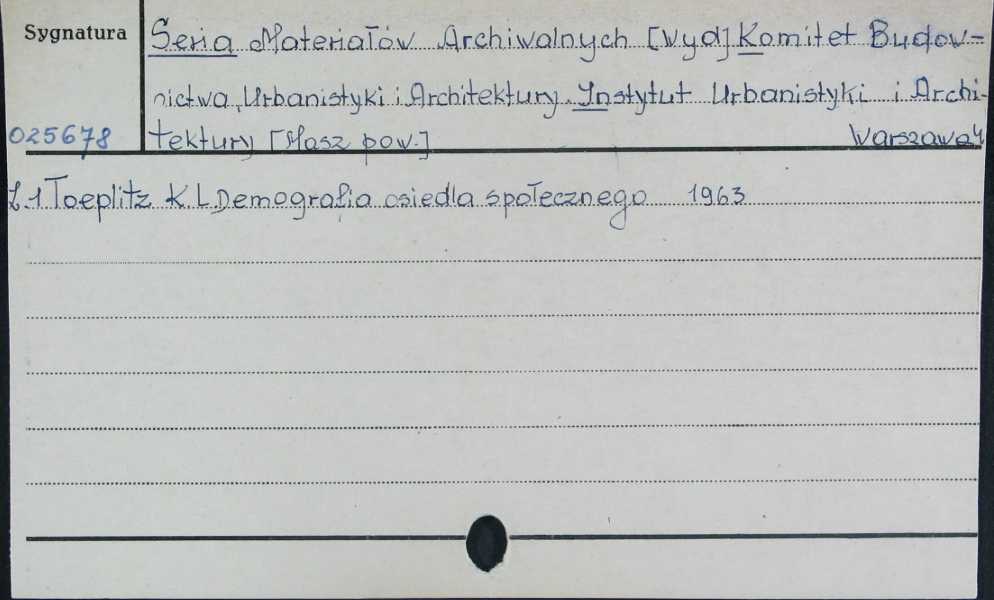 Sygnatura
Seria Materiałów Archiwalnych [Wyd] Komitet Budow-
nictwa, Urbanistyki i Architektury. Instytut Urbanistyki i Archi-
025678 tektury [Masz pow.] Warszawa 4
Z.1 Toeplitz K.L. Demografia osiedla społecznego 1963